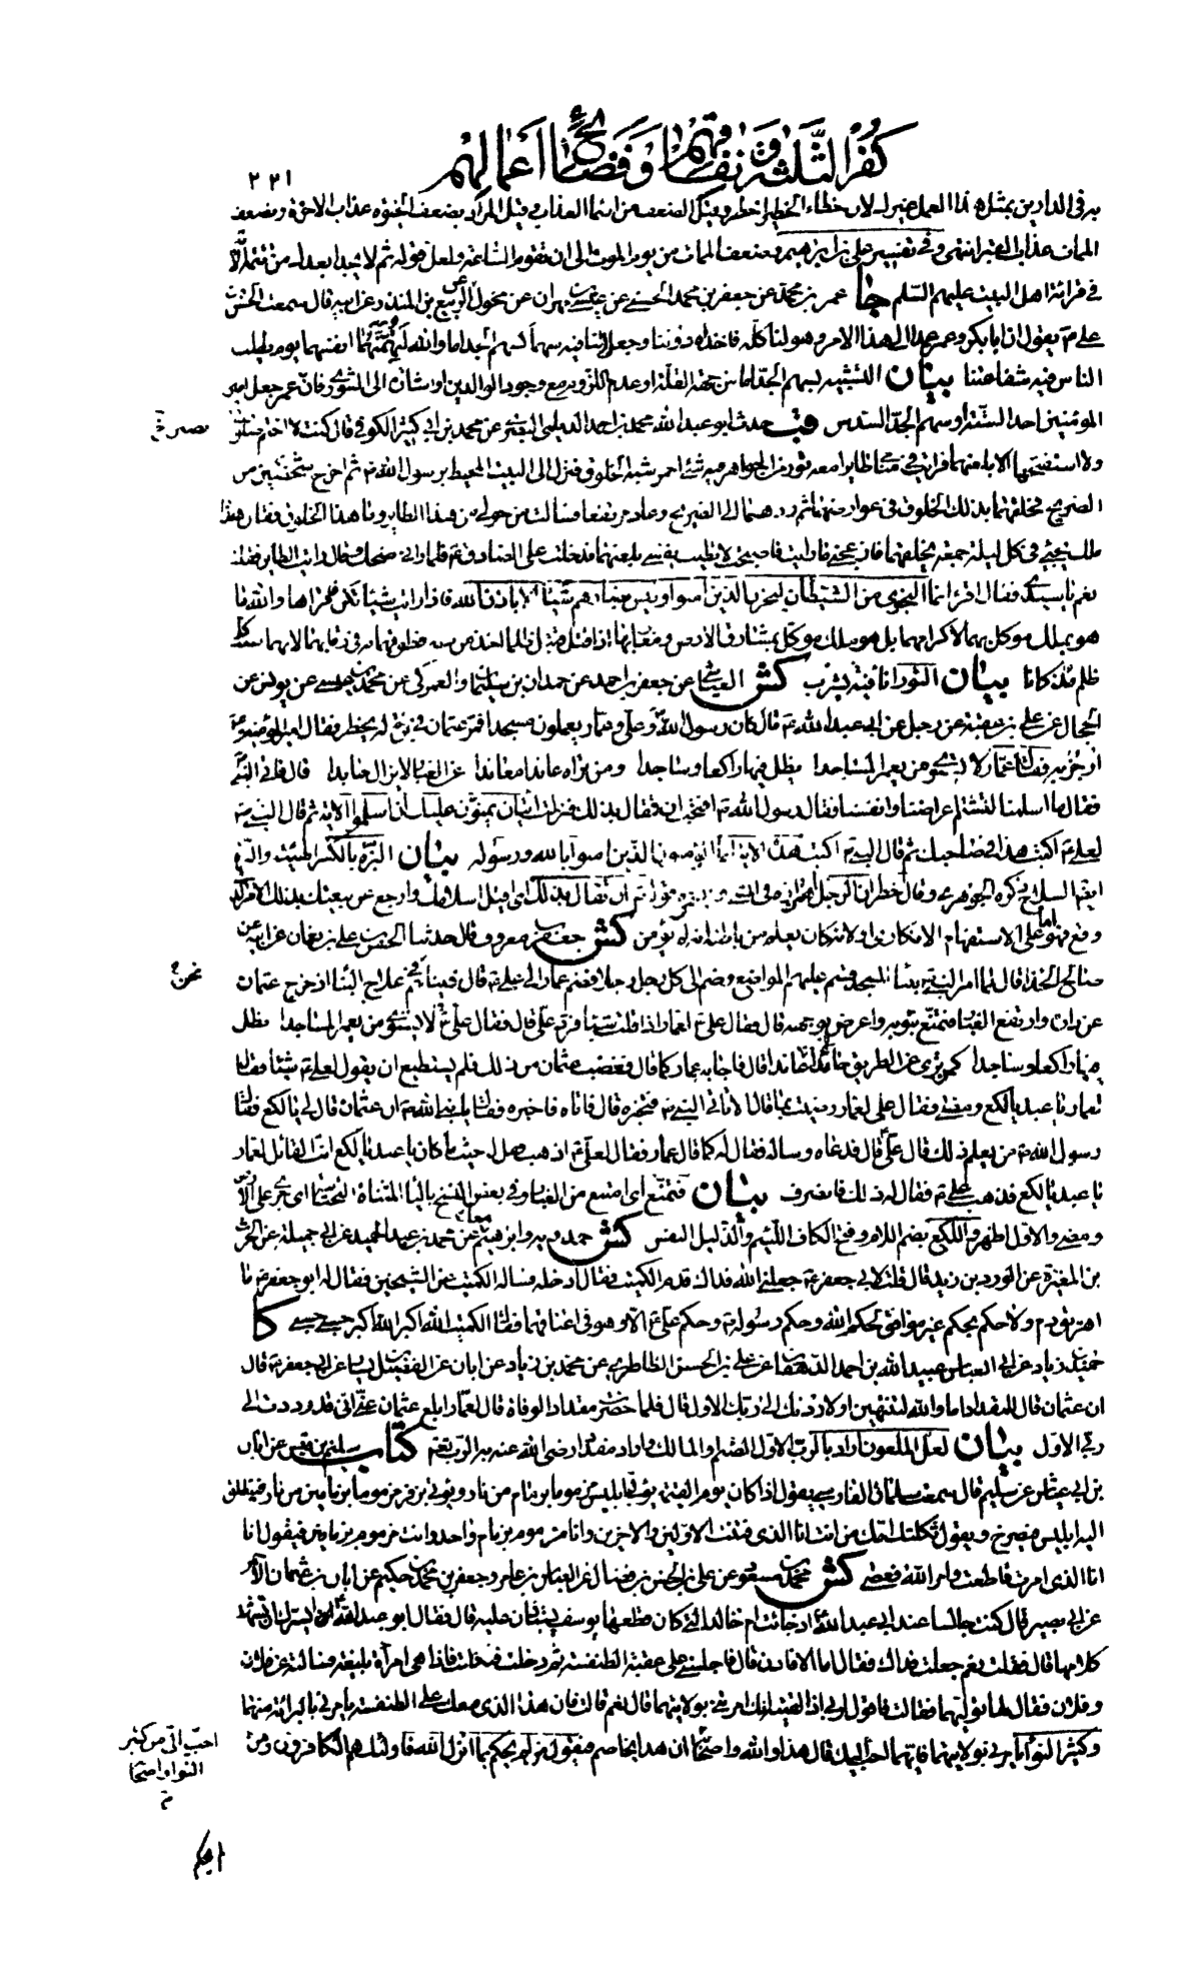 كفر الثلثة ونفاقهم وفضائح أعمالهم
٢٢١
به في الدارين بمثل هذا العمل غيرك لان خطاء الخطير اخطر وقيل الضعف من اسماء العذاب وقيل المراد بضعف الحيوة عذاب الاخرة وبضعف
الممات عذاب القبر انتهى وفي تفسير علي بن ابراهيم وضعف الممات من يوم الموت الى ان تقوم الساعة ولعل قوله ثم لا تجد بعدك من تتمة
في قرائة اهل البيت عليهم السلم جا عمر بن محمد عن جعفر بن محمد الحسني عن عيسى بن مهران عن مخول عن الربيع بن المنذر عن ابيه قال سمعت الحسن بن
علي ع يقول ان ابا بكر وعمر عمدا الى هذا الامر وهو لنا كله فاخذاه دوننا وجعلا لنا فيه سهما كسهم الجدة اما والله ليهمنهما انفسهما يوم يطلب
الناس فيه شفاعتنا بيان التشبيه بسهم الجدة اما من جهة القلة او عدم اللزوم مع وجود الوالدين او اشارة الى الشورى فان عمر جعل امير
المؤمنين احد الستة وسهم الجدة السدس حدث ابو عبد الله محمد بن احمد الديلمي البصري عن محمد بن ابي كثير الكوفي قال كنت لا اختم صلوتي
ولا استفتحها الا بلعنهما فرايت في منامي طائرا معه تور من الجوهر فيه شيء احمر شبه الخلوق فنزل الى البيت المحيط برسول الله ص ثم اخرج شخصين من
الضريح فخلقهما بذلك الخلوق في عوارضهما ثم ردهما الى الضريح وعاد مرتفعا فسالت من حولي من هذا الطائر وما هذا الخلوق فقال هذا
ملك يجيء في كل ليلة جمعة يخلقهما فازعجني ما رايت فاصبحت لا تطيب نفسي بلعنهما فدخلت على الصادق ع فلما راني ضحك وقال رايت الطائر فقلت
نعم يا سيدي فقال اقرا انما النجوى من الشيطان ليحزن الذين امنوا وليس بضارهم شيئا الا باذن الله فاذا رايت شيئا تكره فاقراها والله ما
هو بملك موكل بهما لاكرامهما بل هو ملك موكل بمشارق الارض ومغاربها اذا قتل قتيل ظلما اخذ من دمه فطوقهما به في رقابهما لانهما سبب كل
ظلم مذ كانا بيان التور اناء فيه يشرب كش العياشي عن جعفر بن احمد عن حمدان بن سليمان والعمركي عن محمد بن عيسى عن يونس عن
الحجال عن علي بن عقبة عن رجل عن ابي عبد الله ع قال كان رسول الله ص وعلي وعمار يعملون مسجدا فمر عثمان في بزة له يخطر فقال امير المؤمنين ع
ارجز به فقال عمار لا يستوي من يعمر المساجدا يظل فيها راكعا وساجدا ومن تراه عاندا معاندا عن الغبار لا يزال حائدا قال فاتى النبي ص
فقال ما اسلمنا لتشتم اعراضنا وانفسنا فقال رسول الله ص افتحب ان تقال بذلك فنزلت ايتان يمنون عليك ان اسلموا الاية ثم قال النبي ص
لعلي ع اكتب هذا في صاحبك ثم قال النبي ص اكتب هذه الاية انما المؤمنون الذين امنوا بالله ورسوله بيان البزة بالكسر الهيئة والبزة
ايضا السلاح ذكره الجوهري وقال خطران الرجل اهتزازه في المشي وتبختره قوله ص ان تقال بذلك اي اقيل اسلامك وارجع عن بيعتك بذلك الامر الذي
وقع فهو اما على الاستفهام الانكاري اولا فكان يعلم من باطنه انه لم يؤمن كش جعفر بن معروف قال حدثنا الحسن بن علي بن نعمان عن ابيه عن
صالح الحذاء قال لما امر النبي ص ببناء المسجد قسم عليهم المواضع وضم الى كل رجل رجلا فضم عمارا الى علي ع قال فبينا هم في علاج البناء اذ خرج عثمان
عن داره وارتفع الغبار فتمنع بثوبه واعرض بوجهه قال فقال علي ع لعمار اذا قلت شيئا فرد علي قال فقال علي ع لا يستوي من يعمر المساجدا يظل
فيها راكعا وساجدا كمن يرى عن الطريق حائدا عاندا قال فاجابه عمار كما قال فغضب عثمان من ذلك فلم يستطع ان يقول لعلي ع شيئا فقال
لعمار يا عبد يا لكع ومضى فقال علي ع لعمار رضيت بما قال لك الا تاتي النبي ص فتخبره قال فاتاه فاخبره فقال يا نبي الله ص ان عثمان قال لي يا لكع فقال
رسول الله ص من يعلم ذلك قال علي قال فدعاه وساله فقال له كما قال عمار فقال لعلي ع اذهب فقل له حيث ما كان يا عبد يا لكع انت القائل لعمار
يا عبد يا لكع فذهب علي ع فقال له ذلك فانصرف بيان فتمنع اي امتنع من الغبار وفي بعض النسخ بالياء المثناة التحتانية اي جرى على الارض
ومضى والاول اظهر واللكع بضم اللام وفتح الكاف اللئيم والذليل النفس كش حمدويه وابراهيم معا عن محمد بن عبد الحميد عن ابي جميلة عن الحرث
بن المغيرة عن الورد بن زيد قال قلت لابي جعفر ع جعلني الله فداك قدم الكميت فقال ادخله فساله الكميت عن الشيخين فقال له ابو جعفر ع ما
اهريق دم ولا حكم بحكم غير موافق لحكم الله وحكم رسوله ص وحكم علي ع الا وهو في اعناقهما فقال الكميت الله اكبر الله اكبر حسبي حسبي كا
حميد بن زياد عن ابي العباس عبيد الله بن احمد الدهقان عن علي بن الحسن الطاطري عن محمد بن زياد عن ابان عن الفضيل بن يسار عن ابي جعفر ع قال
ان عثمان قال للمقداد اما والله لتنتهين او لاردنك الى ربك الاول قال فلما حضرت مقداد الوفاة قال لعمار ابلغ عثمان عني اني قد رددت الى
ربي الاول بيان لعل الملعون اراد بالرب الاول الصنم او المالك واراد مقداد رضي الله عنه به الرب تعالى كتاب سليم بن قيس عن ابان
بن ابي عياش عن سليم قال سمعت سلمان الفارسي يقول اذا كان يوم القيمة يؤتى بابليس مزموما بزمام من نار ويؤتى بزفر مزموما بزمامين من نار فينطلق
اليه ابليس فيصرخ ويقول ثكلتك امك من انت انا الذي فتنت الاولين والاخرين وانا مزموم بزمام واحد وانت مزموم بزمامين فيقول انا
انا الذي امرت فاطعت وامر الله فعصي كش محمد بن مسعود عن علي بن الحسن بن فضال عن العباس بن عامر وجعفر بن محمد بن حكيم عن ابان بن عثمان الاحمر
عن ابي بصير قال كنت جالسا عند ابي عبد الله ع اذ جائت ام خالد التي كان قطعها يوسف تستاذن عليه قال فقال ابو عبد الله ع ايسرك ان تشهد
كلامها قال فقلت نعم جعلت فداك فقال اما الان فادن قال فاجلسني على عقبة الطنفسة ثم دخلت فتكلمت فاذا هي امرأة بليغة فسالته عن فلان
وفلان فقال لها توليهما فقالت فاقول لربي اذا لقيته انك امرتني بولايتهما قال نعم قالت فان هذا الذي معك على الطنفسة يامرني بالبرائة منهما
وكثير النوا يامرني بولايتهما فايهما احب اليك قال هذا والله واصحابه ان هذا يخاصم فيقول من لم يحكم بما انزل الله فاولئك هم الكافرون ومن
نحن
احب الي من كثير
النوا واصحابه
م
لم يحكم